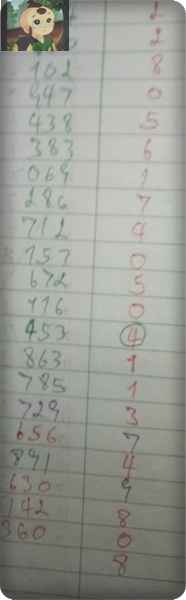 2
2
102 8
947 0
438 5
383 6
069 1
286 7
712 4
157 0
672 5
116 0
453 4
863 1
785 1
729 3
656 7
891 4
630 9
142 8
360 0
8